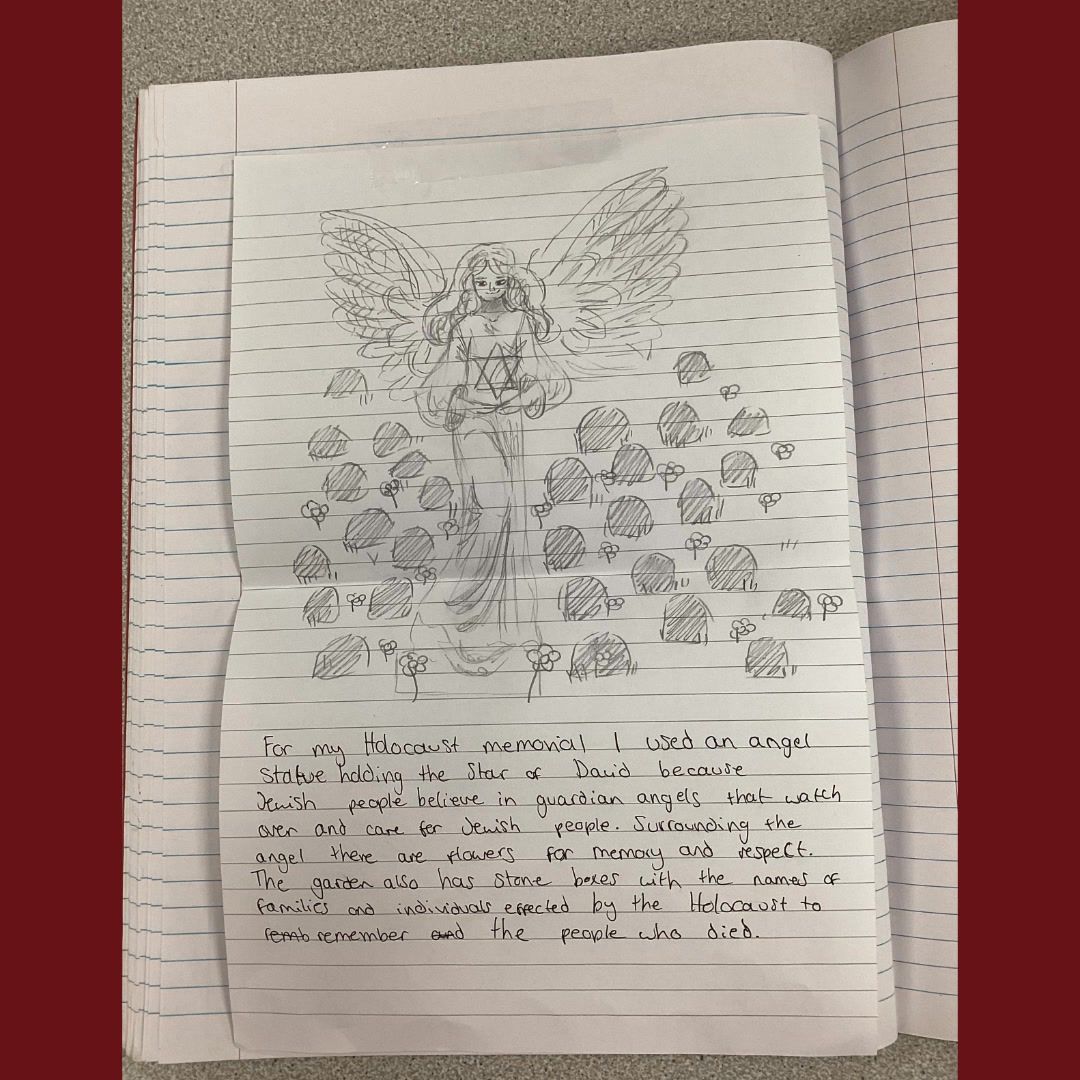 For my Holocaust memorial I used an angel
statue holding the Star of David because
Jewish people believe in guardian angels that watch
over and care for Jewish people. Surrounding the
angel there are flowers for memory and respect.
The garden also has stone boxes with the names of
families and individuals effected by the Holocaust to
remb remember and the people who died.